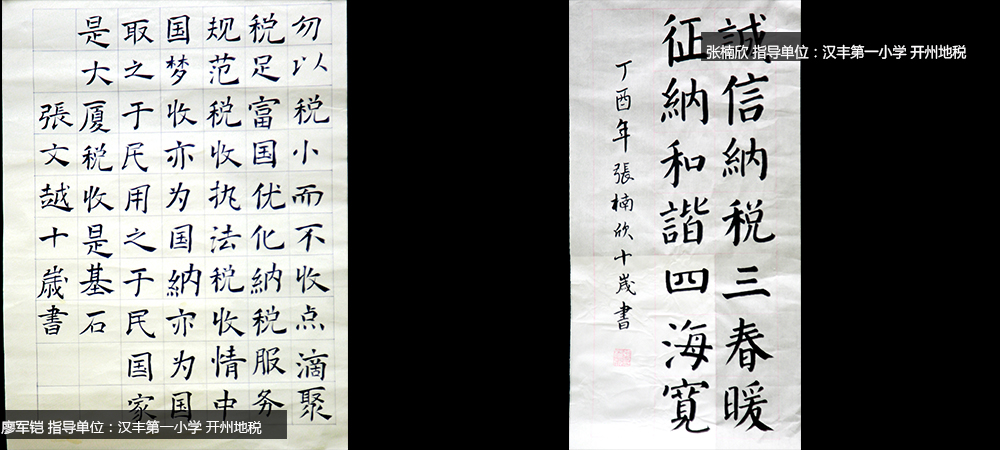 勿以税小而不收点滴聚
税足富国优化納税服务
规范税收执法税收情中
国梦收亦为国納亦为国
取之于民用之于民国家
是大厦税收是基石
張文越十歲書
廖军铠 指导单位：汉丰第一小学 开州地税
誠信納税三春暖
征納和諧四海寬
丁酉年張楠欣十歲書
张楠欣 指导单位：汉丰第一小学 开州地税